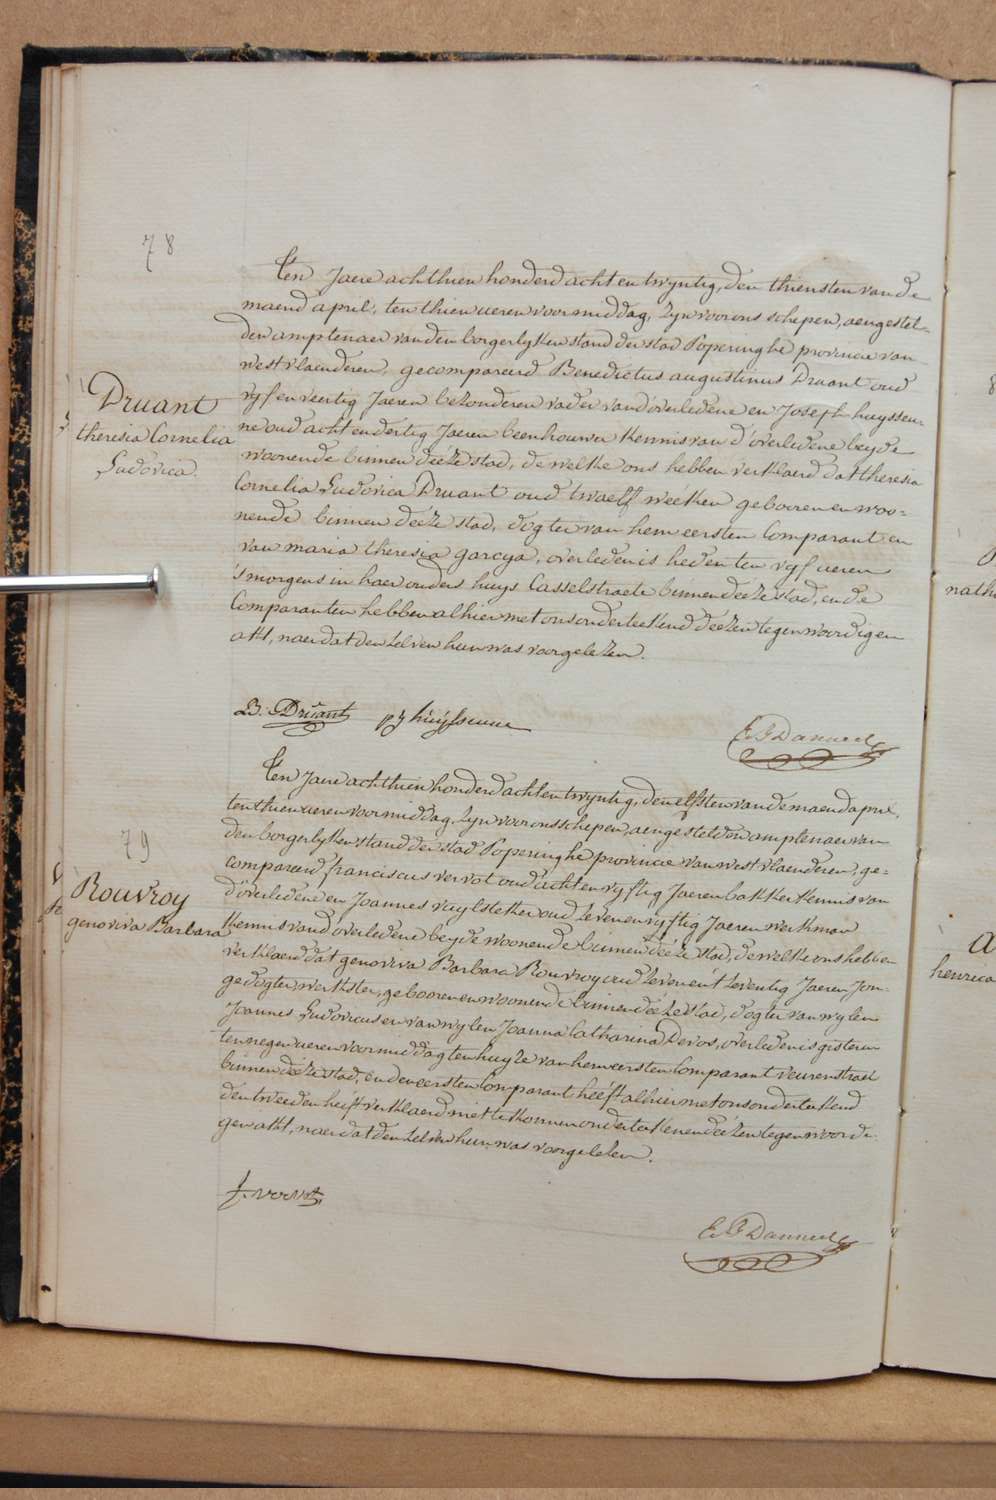 78
Druant
theresia Cornelia
Ludovica
Ten Jaere achthien honderd acht en twyntig, den thiensten van de
maend april, ten thien ueren voormiddag, Zyn voor ons schepen, aengestel-
den amptenaer van den borgerlyken stand der stad Poperinghe provincie van
westvlaenderen, gecompareerd Benedictus augustinus Druant oud
vyf en veertig Jaeren bezonderen vader vand'overledene en Joseph huyssen-
ne oud acht en dertig Jaeren beenhouwer kennis van d'overledene beyde
woonende binnen déeze stad, de welke ons hebben verklaerd dat theresia
Cornelia Ludovica Druant oud twaelf wéeken geboren en woo-
nende binnen déeze stad, dogter van hem eersten Comparant en
van maria theresia garcya, overleden is heden ten vyf ueren
's morgens in haer ouders huys Casselstraete binnen déeze stad, en de
Comparanten hebben alhier met ons onderteekend déezen tegenwoordigen
akt, naer dat den zelven hun was voorgelezen.
B: Druant
pj huÿssenne
79
Rouvroy
genoviva Barbara
Ten Jaere achthien honderd acht en twyntig, den elfsten van de maend april,
ten thien ueren voormiddag, Zyn voor ons schepen, aengestelden amptenaer van
den borgerlyken stand der stad Poperinghe provincie van westvlaenderen, ge-
compareerd franciscus vervot oud acht en vyftig Jaeren bakker kennis van
d'overledene en Joannes ruylsteker oud zeven en vyftig Jaeren werkman
kennis vand'overledene beyde woonende binnen déeze stad, de welke ons hebben
verklaerd dat genoviva Barbara Rouvroy oud zeven en t'zeventig Jaeren Jon-
ge dogter werkster, geboren en woonende binnen déeze stad, dogter van wylen
Joannes Ludovicus en van wylen Joanna Catharina Devos, overleden is gisteren
ten negen ueren voormiddag ten huyze van hem eersten Comparant veurenstraet
binnen déeze stad, en den eersten Comparant héeft alhier met ons onderteekend
den tweeden heeft verklaerd niet te konnen onderteekenen déezen tegenwoordi-
gen akt, naer dat den zelven hun was voorgelezen.
f. vervot
henrica